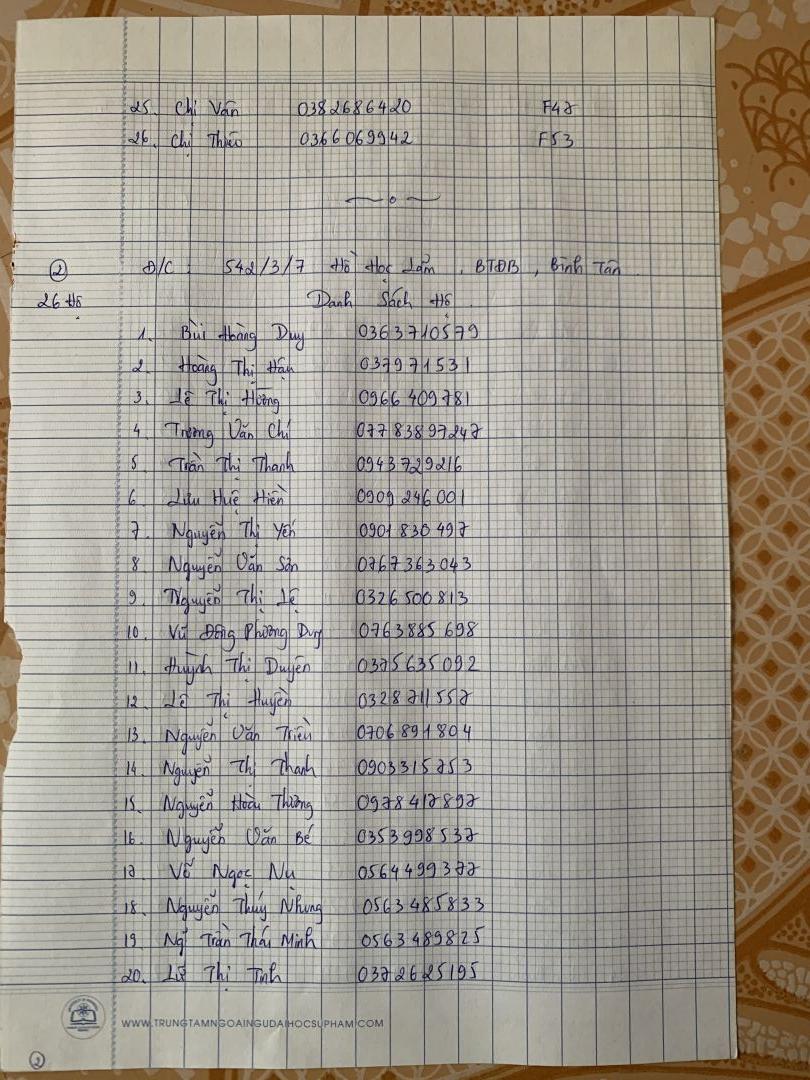 25. Chị Vân 0382686420 F47
26. Chị Thảo 0366069942 F53
② Đ/C : 542/3/7 Hồ Học Lãm, BTĐB, Bình Tân.
26 Hộ Danh Sách Hộ.
1. Bùi Hoàng Duy 0363710579
2. Hoàng Thị Hậu 037971531
3. Lê Thị Hường 0966 409781
4. Trương Văn Chí 07783897247
5. Trần Thị Thanh 0943729216
6. Lưu Huệ Hiền 0909 246 001
7. Nguyễn Thị Yến 0901 830 497
8. Nguyễn Văn Sơn 0767363043
9. Nguyễn Thị Lệ 0326 500 813
10. Vũ Đông Phương Duy 0763885 698
11. Huỳnh Thị Duyên 0375635092
12. Lê Thị Huyền 0328711557
13. Nguyễn Văn Triều 0706891804
14. Nguyễn Thị Thanh 0903315753
15. Nguyễn Hoàu Thương 0978417897
16. Nguyễn Văn Bé 0353998537
17 Võ Ngọc Nu 0564499377
18. Nguyễn Thúy Nhung 0563485833
19. Ng̃ Trần Thái Minh 0563489825
20. Lữ Thị Tình 0372625195
WWW.TRUNGTAMNGOAINGUDAIHOCSUPHAM.COM
②